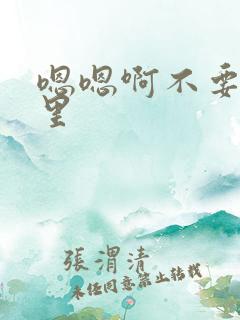 嗯嗯啊不要
里
張渭清
未经同意禁止转载